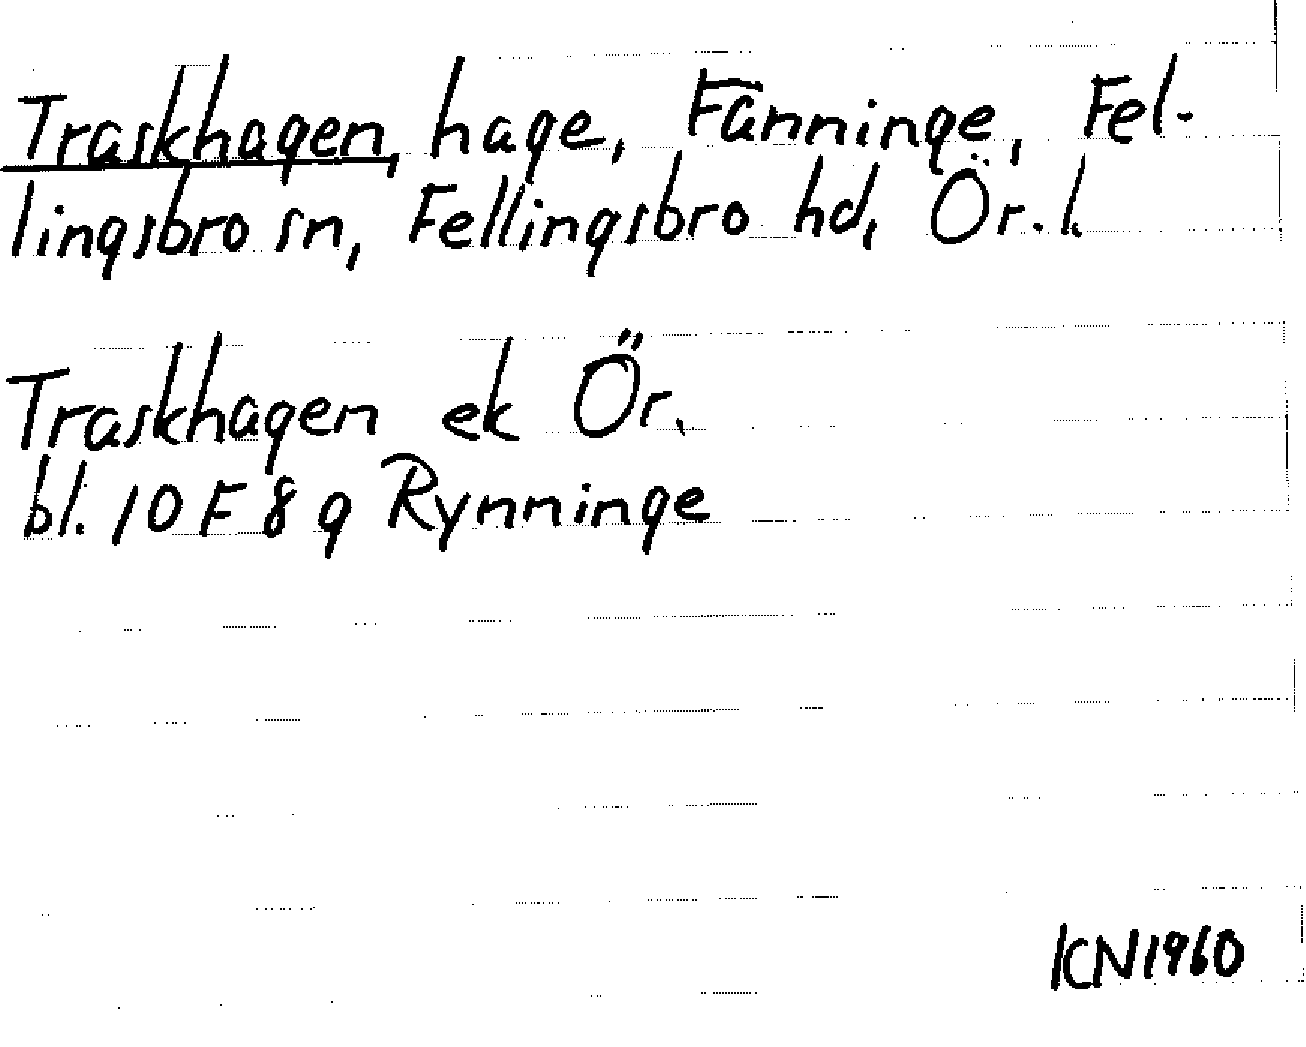 Traskhagen, hage, Fänninge, Fel-
lingsbro sn, Fellingsbro hd, Ör. l.
Traskhagen ek Ör.
bl. 10 F 8 g Rynninge
KN1960